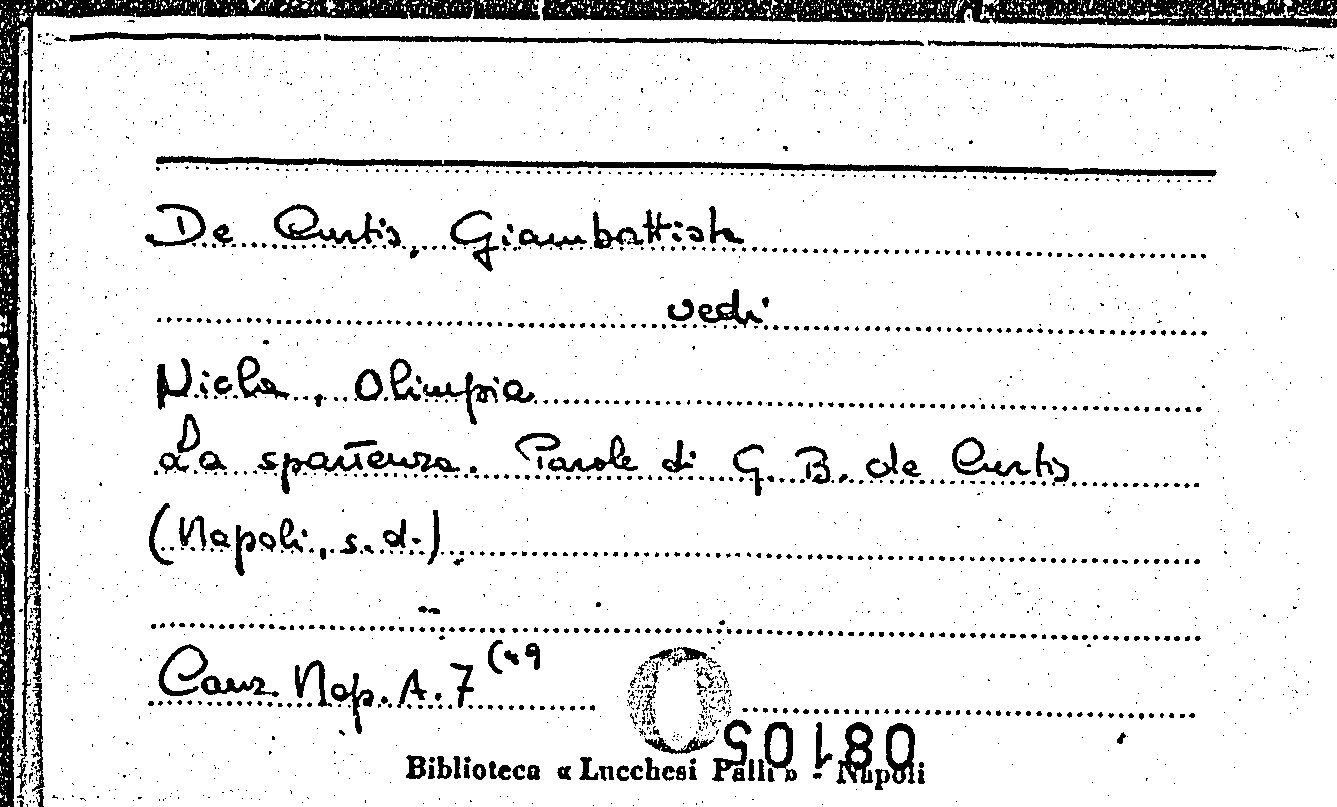 De Curtis, Giambattista
vedi
Nicla, Olimpia
La spartenza. Parole di G. B. de Curtis
(Napoli, s. d.).
Canz. Nap. A. 7
08105
Biblioteca « Lucchesi Palli » - Napoli